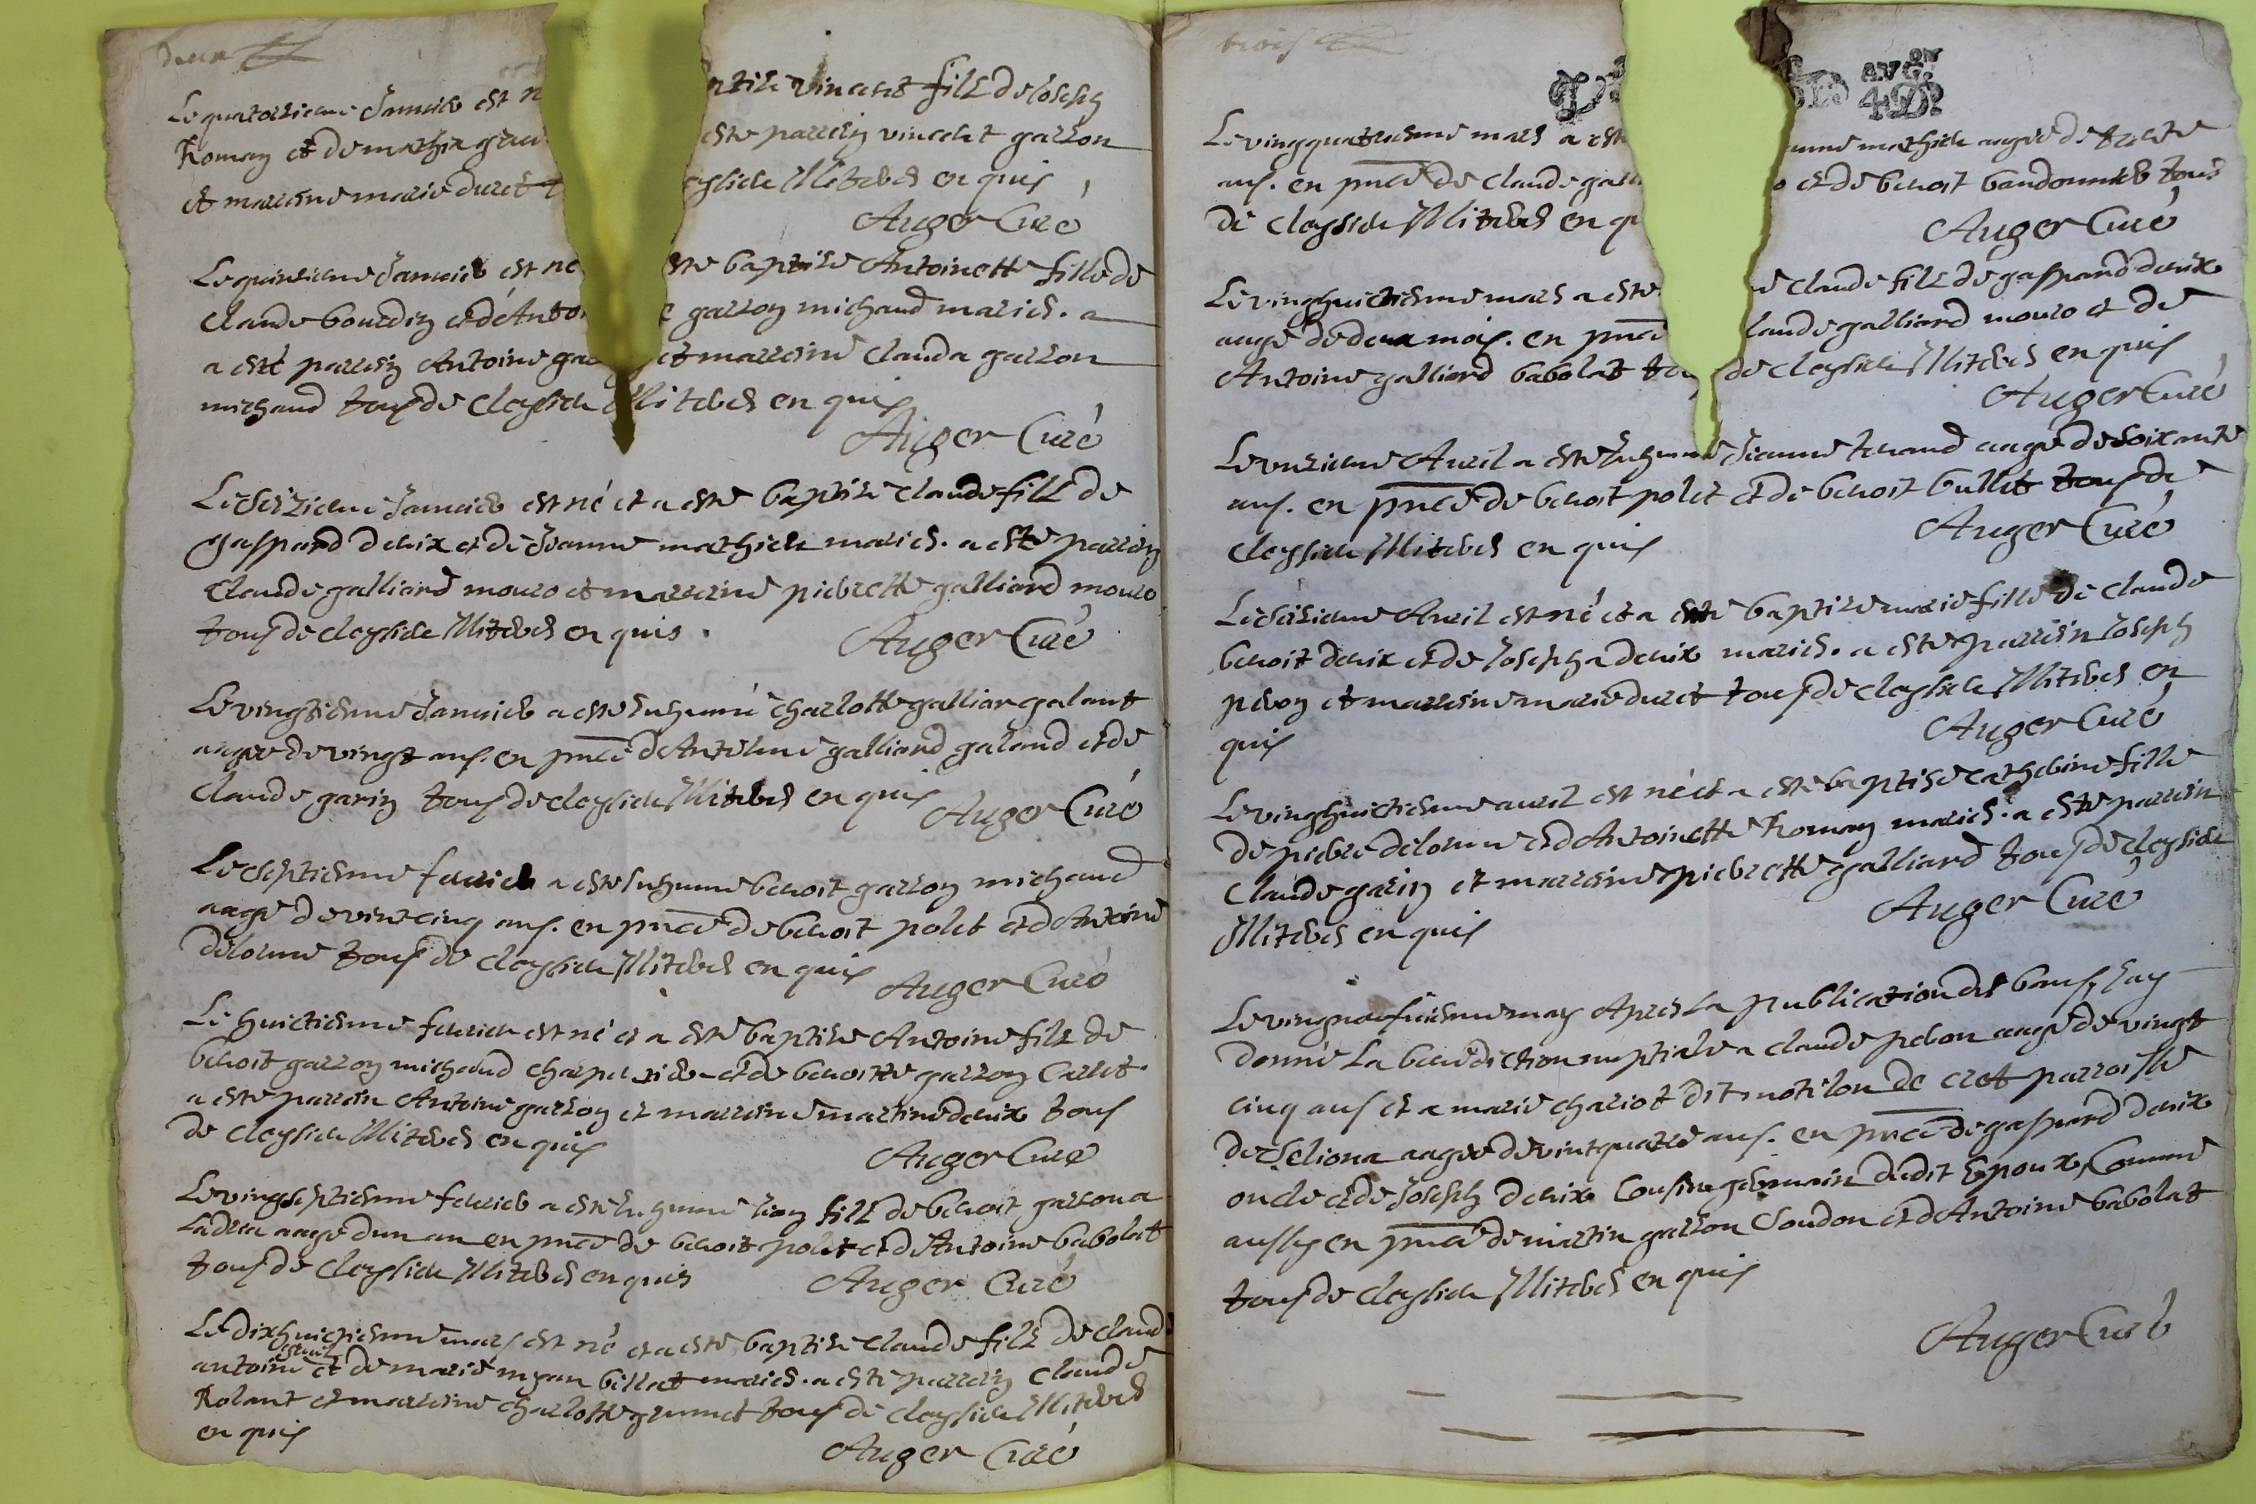 deux
Le quatorzieme Janvier est n ptise vincent fils de Joseph
Roman et de mathia gru este parrein vincent garzon
et marrene marie duret t eyssieu Miteres en quis
Auger Curé
Le quinzieme Janvier est né este baptise Antoinette fille de
Claude bourdin et d'Anto garzon michaud mariés. a
a esté parrein Antoine gar et marreine Clauda garzon
michaud tous de Cleyssieu Miteres en quis
Auger Curé
Le seizieme Janvier est né et a este baptise Claude fils de
gaspard devix et de Jeanne mathieu mariés. a este parrein
Claude galliard mouro et marreine pierrette galliard mouro
tous de cleyssieu Miteres en quis.
Auger Curé
Le vingtiesme Janvier a este Inhumé charlotte galliar galant
aagee de vingt ans. en pnce d'Antelme galliard galand et de
Claude garin tous de cleyssieu Miteres en quis
Auger Curé
Le septiesme fevrier a este Inhume benoit garzon michaud
aage de vint cinq ans. en pnce de benoit polet et d'Antoine
delorme tous de cleyssieu Miteres en quis
Auger Curé
Le huictiesme fevrier est né et a este baptise Antoine fils de
benoit garzon michaud charpentier et de benoitte garzon Carlet.
a este parrein Antoine garzon et marreine martine devix tous
de cleyssieu Miteres en quis
Auger Curé
Le vingseptiesme fevrier a este Inhume lion fils de benoit garzon a
Ladrea aage dun an en pnce de benoit polet et d'Antoine babolat
tous de cleyssieu Miteres en quis
Auger Curé
Le dixhuictiesme mars est né et a este baptise Claude fils de Claude
antoine et de marie mian billat mariés. a este parrein Claude
Rolant et marreine charlotte grumet tous de cleyssieu Miteres
en quis
Auger Curé
trois
AVG.
4 D
Le vingquatriesme mars a est anne mathieu aagee de trente
ans. en pnce de Claude gall o et de benoit bandonnier tous
de cleyssieu Miteres en q
Auger Curé
Le vinghuictiesme mars a este é Claude fils de gaspard devix
aagé de deux mois. en pnce laude galliard mouro et de
Antoine galliard babolat to de cleyssieu Miteres en quis
Auger Curé
Le unzieme Avril a este Inhume Jeanne tenand aagé de soixante
ans. en pnce de benoit polet et de benoit bullet tous de
Cleyssieu Miteres en quis
Auger Curé
Le seizieme Avril est né et a este baptise marie fille de Claude
benoit devix et de Josepha devix mariés. a este parrein Joseph
peron et marreine marie duret tous de cleyssieu Miteres en
quis
Auger Curé
Le vinghuictiesme avril est né et a este baptise catherine fille
de pierre delorme et d'Antoinette Roman mariés. a este parrein
Claude garin et marreine pierrette galliard tous de cleyssieu
Miteres en quis
Auger Curé
Le vingneufviesme may Apres la publication des bans, Jay
donné La benediction nuptiale a claude peron aagé de vingt
cinq ans et a marie chariot dit motilon de cret parroisse
de Seliona aagee de vintquatre ans. en pnce de gaspard devix
oncle et de Joseph devix Cousin germain dudit Epoux, Comme
aussy en pnce de martin garzon Coudon et d'Antoine babolat
tous de cleyssieu Miteres en quis
Auger Curé